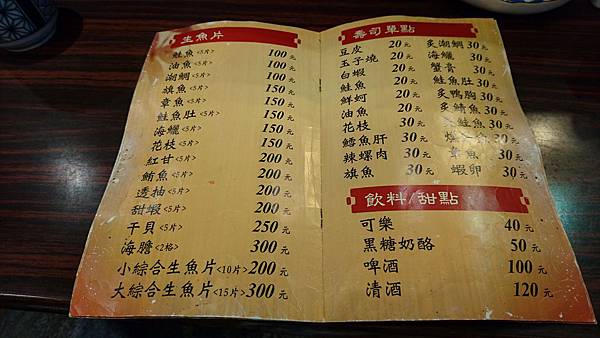 生魚片
鮭魚<5片> 100元
油魚<5片> 100元
潮鯛<5片> 100元
旗魚<5片> 150元
章魚<5片> 150元
鮭魚肚<5片> 150元
海鱺<5片> 150元
花枝<5片> 150元
紅甘<5片> 200元
鮪魚<5片> 200元
透抽<5片> 200元
甜蝦<5片> 200元
干貝<5片> 250元
海膽<2格> 300元
小綜合生魚片<10片> 200元
大綜合生魚片<15片> 300元
壽司單點
豆皮 20元 炙潮鯛 30元
玉子燒 20元 海鱺 30元
白蝦 20元 蟹膏 30元
鮭魚 20元 鮭魚肚 30元
鮮蚵 20元 炙鴨胸 30元
油魚 20元 炙鯖魚 30元
花枝 30元 鮭魚 30元
鱈魚肝 30元 30元
辣螺肉 30元 章魚 30元
旗魚 30元 蝦卵 30元
飲料/甜點
可樂 40元
黑糖奶酪 50元
啤酒 100元
清酒 120元